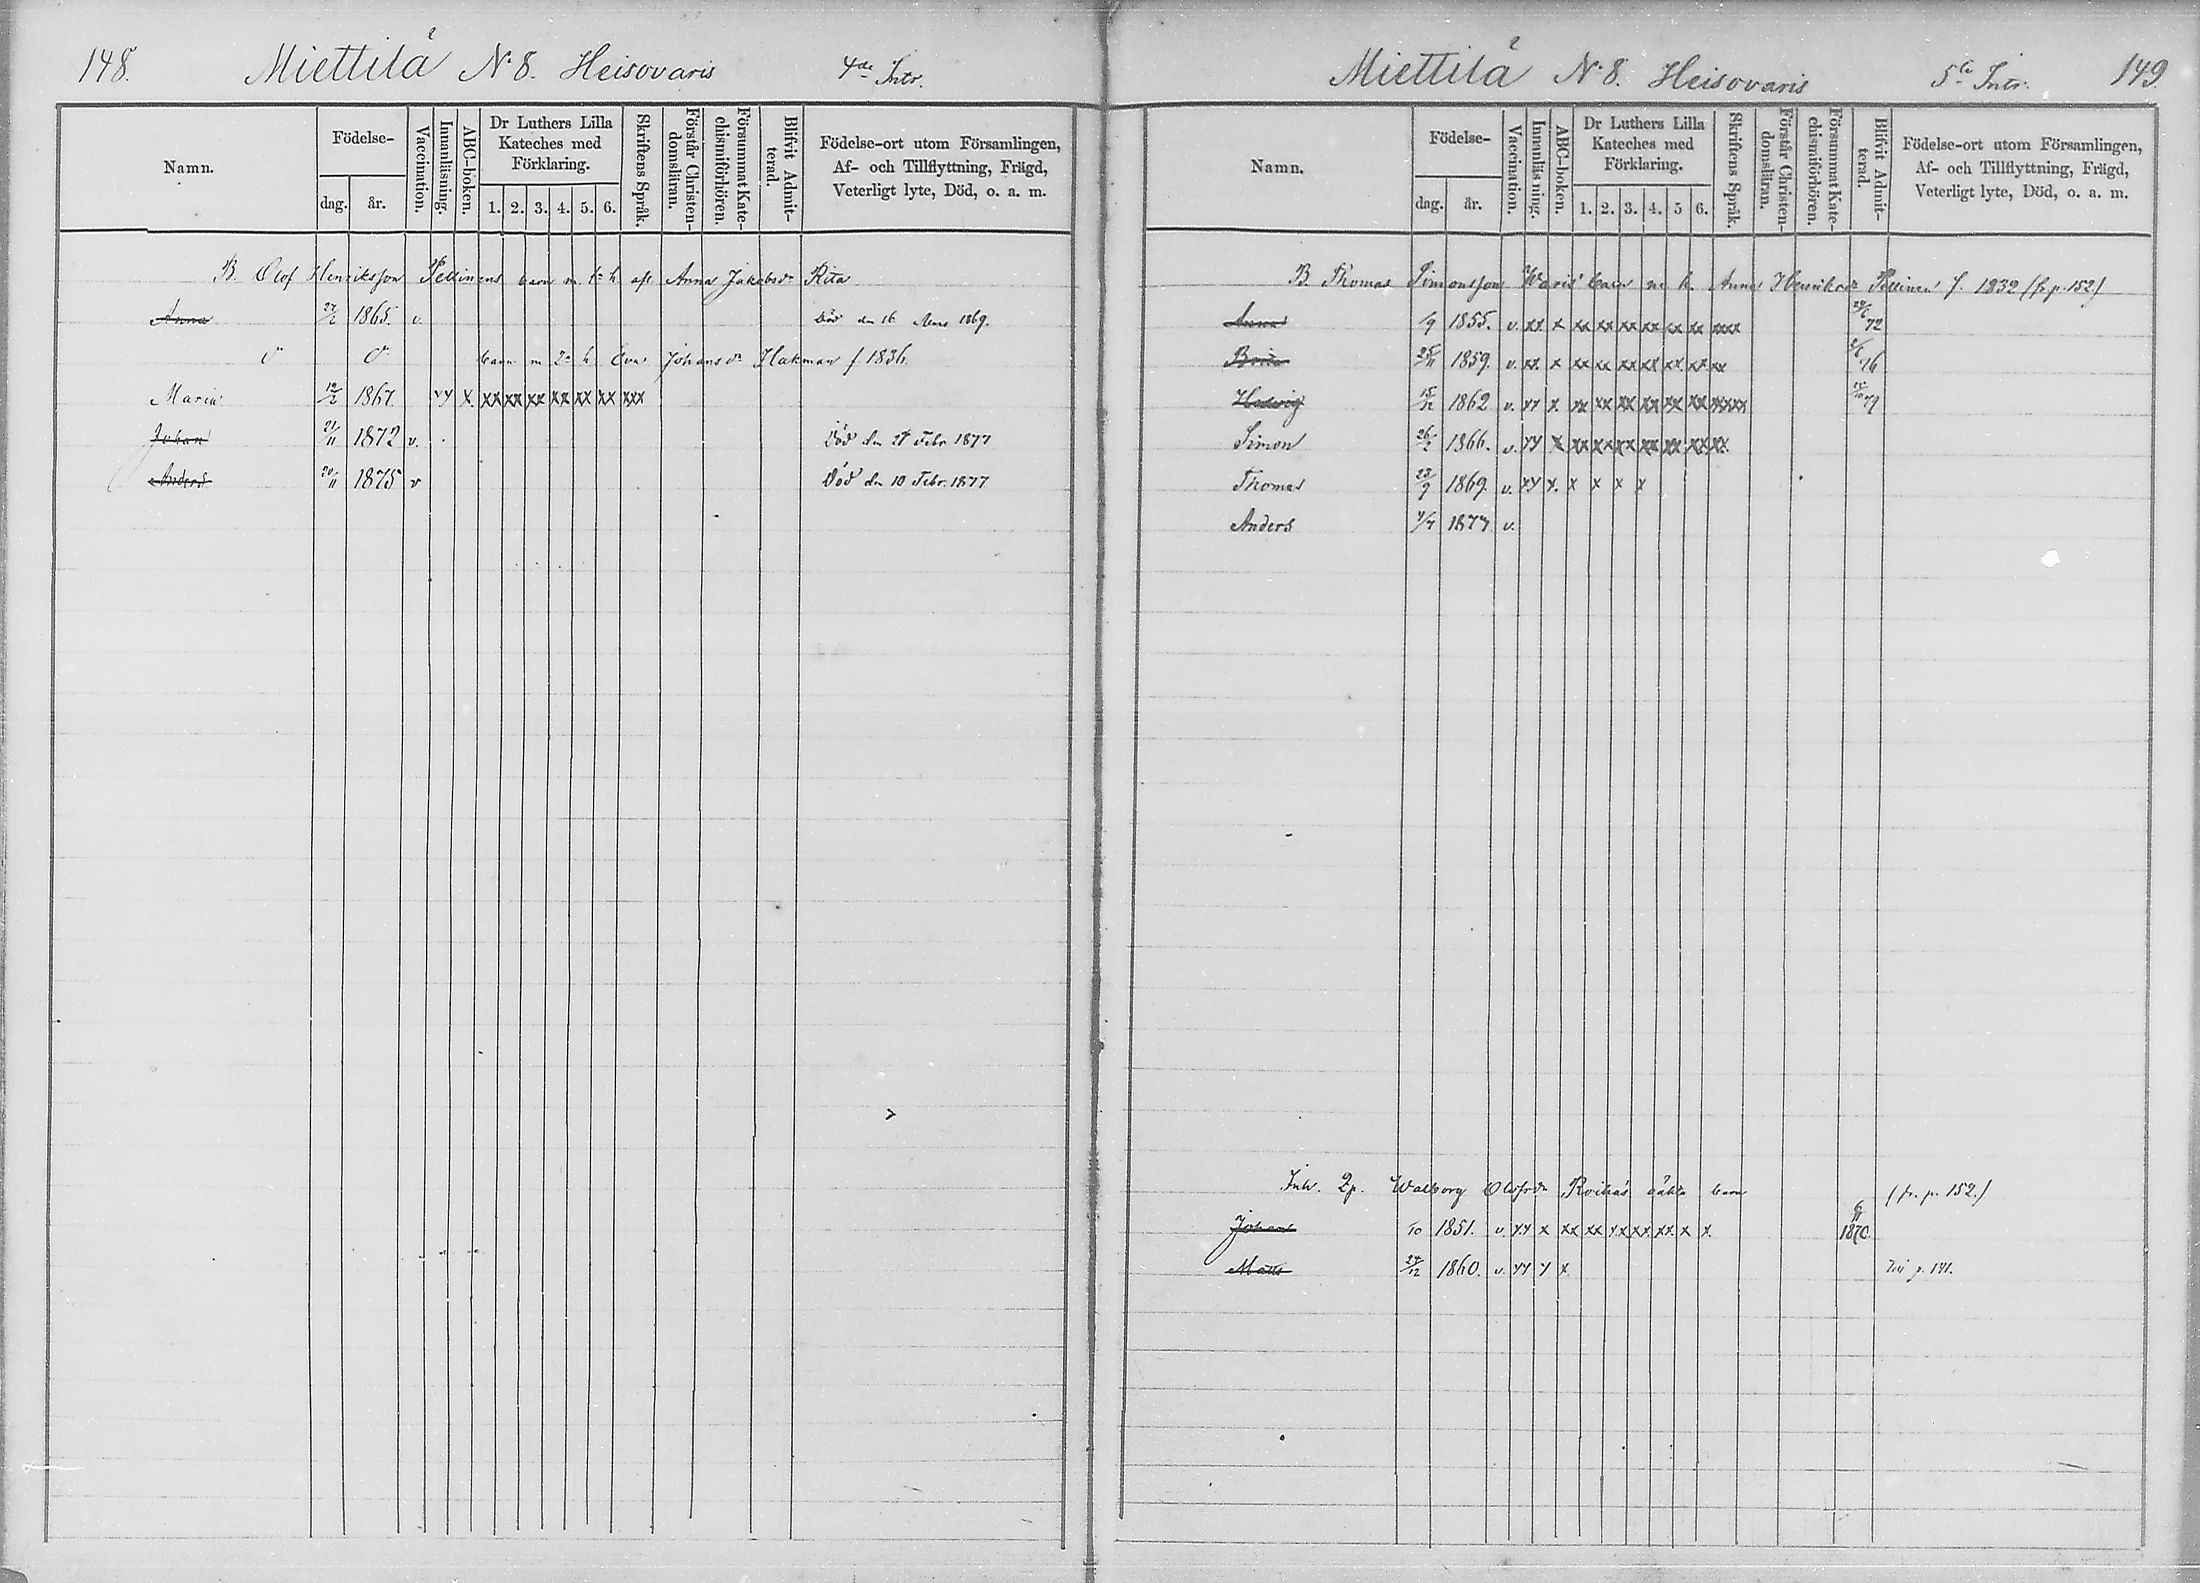 148. Miettilä N 8. Heisovaris 4de Intr.
Namn.
Födelse-
dag. år.
Vaccination.
Innanläsning.
ABC-boken.
Dr Luthers Lilla Kateches med Förklaring.
1. 2. 3. 4. 5. 6.
Skriftens Språk.
Förstår Christen-domsläran.
Försummat Kate-chismiförhören.
Blifvit Admit-terad.
Födelse-ort utom Församlingen, Af- och Tillflyttning, Frägd, Veterligt lyte, Död, o. a. m.
B. Olof Henriksson Pellinens barn m. 1a h. afl. Anna Jakobsdr Rita
Anna 1865. v. Död den 16 1869.
barn m 2a h. Eva Johansdr Hakman f. 1836.
Maria 12/2 1867. xx x. xx xx xx xx xx xx xxx
Johan 21/11 1872 v. Död den 27 Febr. 1877
Anders 20/11 1875 v Död den 10 Febr. 1877
Miettilä N 8. Heisovaris 5te Intr. 149
Namn.
Födelse-
dag. år.
Vaccination.
Innanläsning.
ABC-boken.
Dr Luthers Lilla Kateches med Förklaring.
1. 2. 3. 4. 5 6.
Skriftens Språk.
Förstår Christen-domsläran.
Försummat Kate-chismiförhören.
Blifvit Admit-terad.
Födelse-ort utom Församlingen, Af- och Tillflyttning, Frägd, Veterligt lyte, Död, o. a. m.
B. Thomas Simonsson Waris' barn m. h. Anna Henriksdr Pellinen f. 1832 (fr. p. 152.)
Anna 1/9 1855. v. xx x xx xx xx xx xx xx xxxx 72
Brita 25/11 1859. v. xx x xx xx xx xx xx xx xx 76
Hedvig 15/12 1862 v. xx x. xx xx xx xx xx xx xxxxx 79
Simon 26/2 1866. v. xx x xx xx xx xx xx xx xx.
Thomas 23/9 1869. v. xx x. x x x x
Anders 4/7 1877 v.
Inh. 2p. Walborg Olofsdr Roikas oäkta barn (fr. p. 152.)
Johan 10 1851. v. xx x xx xx xx xx xx. x x. 1870.
Matts 24/12 1860. v. xx x x p. 141.